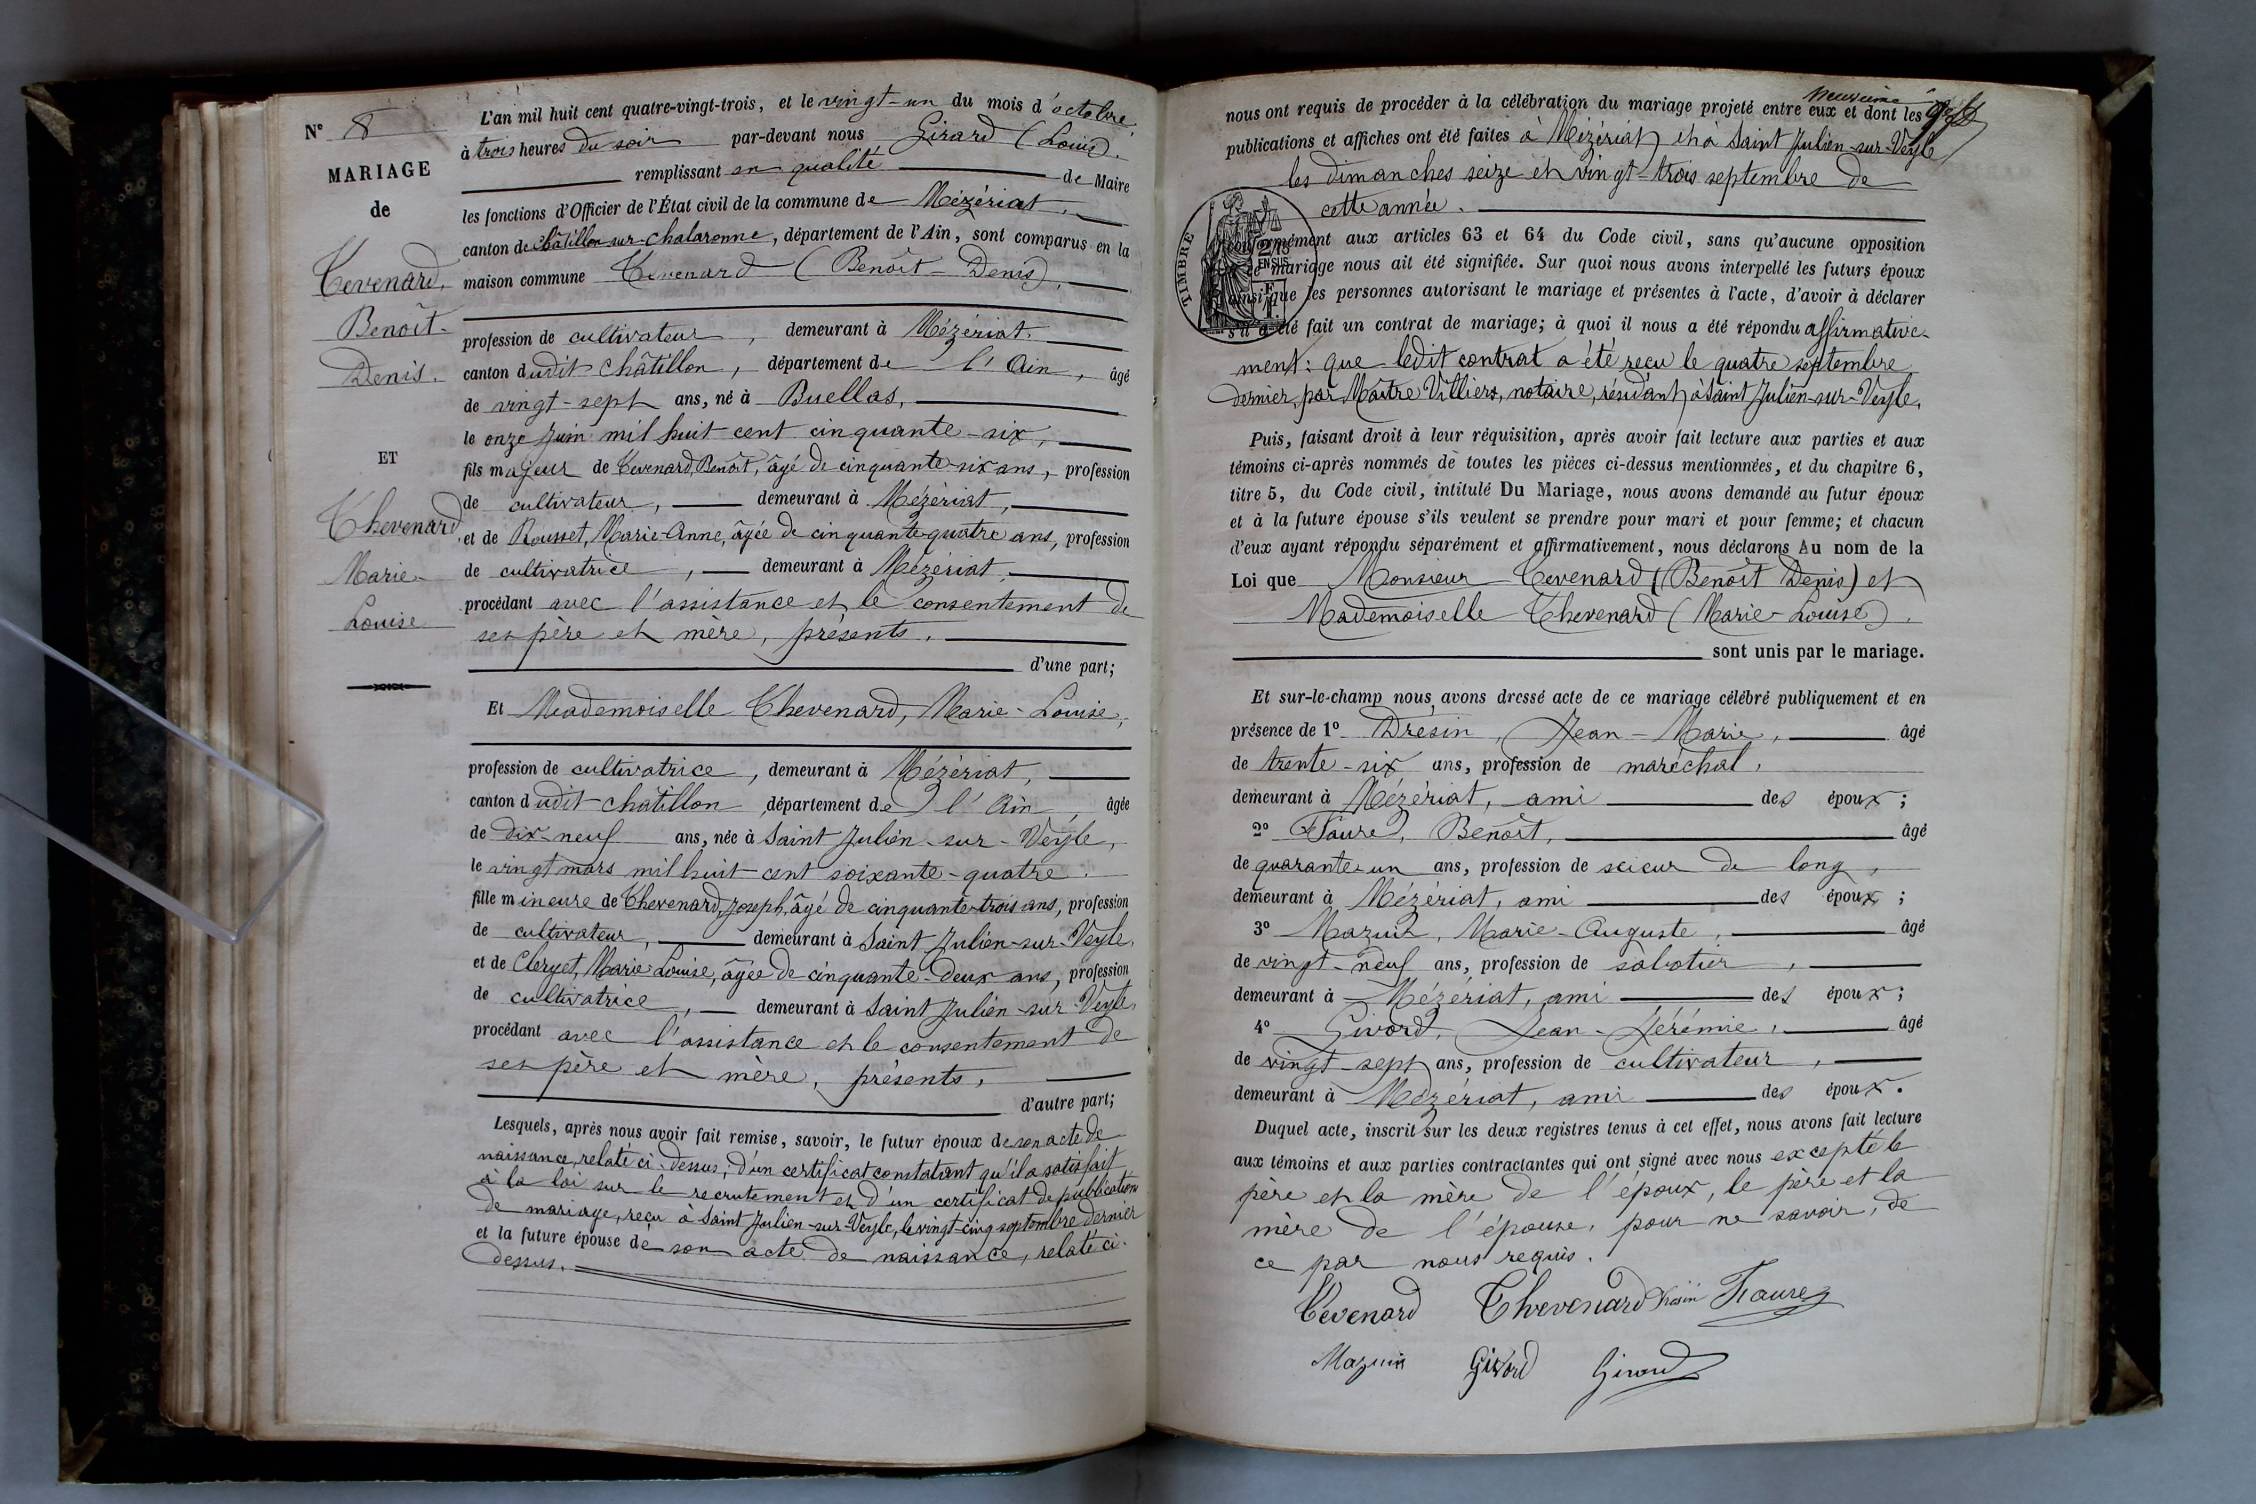 N° 8
MARIAGE
de
Tevenard,
Benoît-
Denis.
ET
Thevenard
Marie
Louise
L'an mil huit cent quatre-vingt-trois, et le vingt-un du mois d'octobre,
à trois heures du soir par-devant nous Girard (Louis).
remplissant en qualité de Maire
les fonctions d'Officier de l'État civil de la commune de Mézériat,
canton de Châtillon-sur-Chalaronne, département de l'Ain, sont comparus en la
maison commune Tevenard (Benoît-Denis),
profession de cultivateur, demeurant à Mézériat.
canton dudit Châtillon, département de l'Ain, âgé
de vingt-sept ans, né à Buellas,
le onze Juin mil huit cent cinquante-six,
fils majeur de Tevenard, Benoît, âgé de cinquante-six ans, profession
de cultivateur, demeurant à Mézériat,
et de Rousset, Marie-Anne, âgée de cinquante-quatre ans, profession
de cultivatrice, demeurant à Mézériat,
procédant avec l'assistance et le consentement de
ses père et mère, présents.
d'une part;
Et Mademoiselle Thevenard, Marie-Louise,
profession de cultivatrice, demeurant à Mézériat,
canton dudit Châtillon, département de l'Ain, âgée
de dix-neuf ans, née à Saint Julien-sur-Veyle,
le vingt mars mil huit cent soixante-quatre.
fille mineure de Thevenard, Joseph, âgé de cinquante-trois ans, profession
de cultivateur, demeurant à Saint Julien-sur-Veyle,
et de Clerget, Marie Louise, âgée de cinquante-deux ans, profession
de cultivatrice, demeurant à Saint Julien-sur Veyle,
procédant avec l'assistance et le consentement de
ses père et mère, présents,
d'autre part;
Lesquels, après nous avoir fait remise, savoir, le futur époux de son acte de
naissance, relaté ci-dessus; d'un certificat constatant qu'il a satisfait
à la loi sur le recrutement et d'un certificat de publications
de mariage, reçu à Saint Julien-sur-Veyle, le vingt-cinq septembre dernier
et la future épouse de son acte de naissance, relaté ci-
dessus.
neuvième
nous ont requis de procéder à la célébration du mariage projeté entre eux et dont les
publications et affiches ont été faites à Mézériat et à Saint Julien-sur-Veyle
les dimanches seize et vingt-trois septembre de
cette année.
TIMBRE
2/10
EN SUS
conformément aux articles 63 et 64 du Code civil, sans qu'aucune opposition
ce mariage nous ait été signifiée. Sur quoi nous avons interpellé les futurs époux
ainsi que les personnes autorisant le mariage et présentes à l'acte, d'avoir à déclarer
s'il a été fait un contrat de mariage; à quoi il nous a été répondu affirmative-
ment: que ledit contrat a été reçu le quatre septembre
dernier, par Maître Villiers, notaire, résidant à Saint Julien-sur-Veyle,
Puis, faisant droit à leur réquisition, après avoir fait lecture aux parties et aux
témoins ci-après nommés de toutes les pièces ci-dessus mentionnées, et du chapitre 6,
titre 5, du Code civil, intitulé Du Mariage, nous avons demandé au futur époux
et à la future épouse s'ils veulent se prendre pour mari et pour femme; et chacun
d'eux ayant répondu séparément et affirmativement, nous déclarons Au nom de la
Loi que Monsieur Tevenard (Benoît Denis) et
Mademoiselle Thevenard (Marie-Louise).
sont unis par le mariage.
Et sur-le-champ nous avons dressé acte de ce mariage célébré publiquement et en
présence de 1° Drésin, Jean-Marie, âgé
de trente-six ans, profession de maréchal,
demeurant à Mézériat, ami des époux;
2° Faure, Benoît, âgé
de quarante-un ans, profession de scieur de long,
demeurant à Mézériat, ami des époux;
3° Mazuir, Marie-Auguste, âgé
de vingt-neuf ans, profession de sabotier,
demeurant à Mézériat, ami des époux;
4° Givord, Jean-Jérémie, âgé
de vingt-sept ans, profession de cultivateur,
demeurant à Mézériat, ami des époux.
Duquel acte, inscrit sur les deux registres tenus à cet effet, nous avons fait lecture
aux témoins et aux parties contractantes qui ont signé avec nous excepté le
père et la mère de l'époux, le père et la
mère de l'épouse, pour ne savoir, de
ce par nous requis.
Tévenard Thevenard Drésin Faure
Mazuir Givord Girard